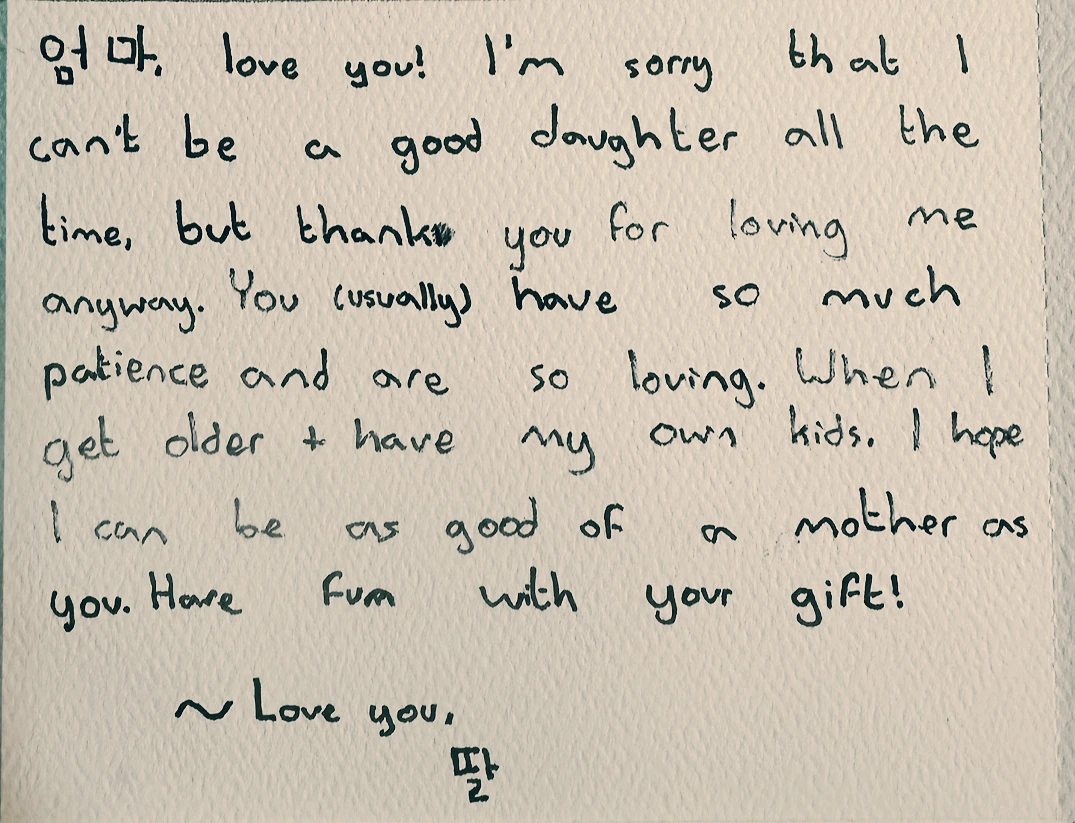 엄마, love you! I'm sorry that I
can't be a good daughter all the
time, but thank you for loving me
anyway. You (usually) have so much
patience and are so loving. When I
get older + have my own kids. I hope
I can be as good of a mother as
you. Have fun with your gift!
~ Love you,
딸